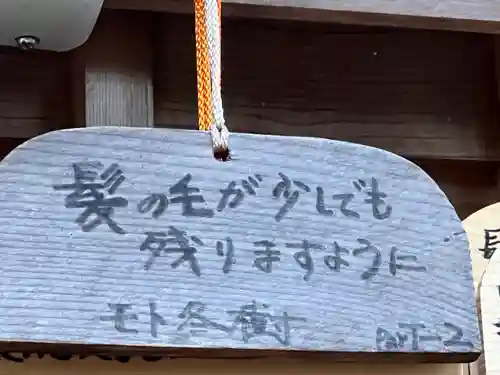 髪の毛が少しでも
残りますように
モト冬樹 PART-2